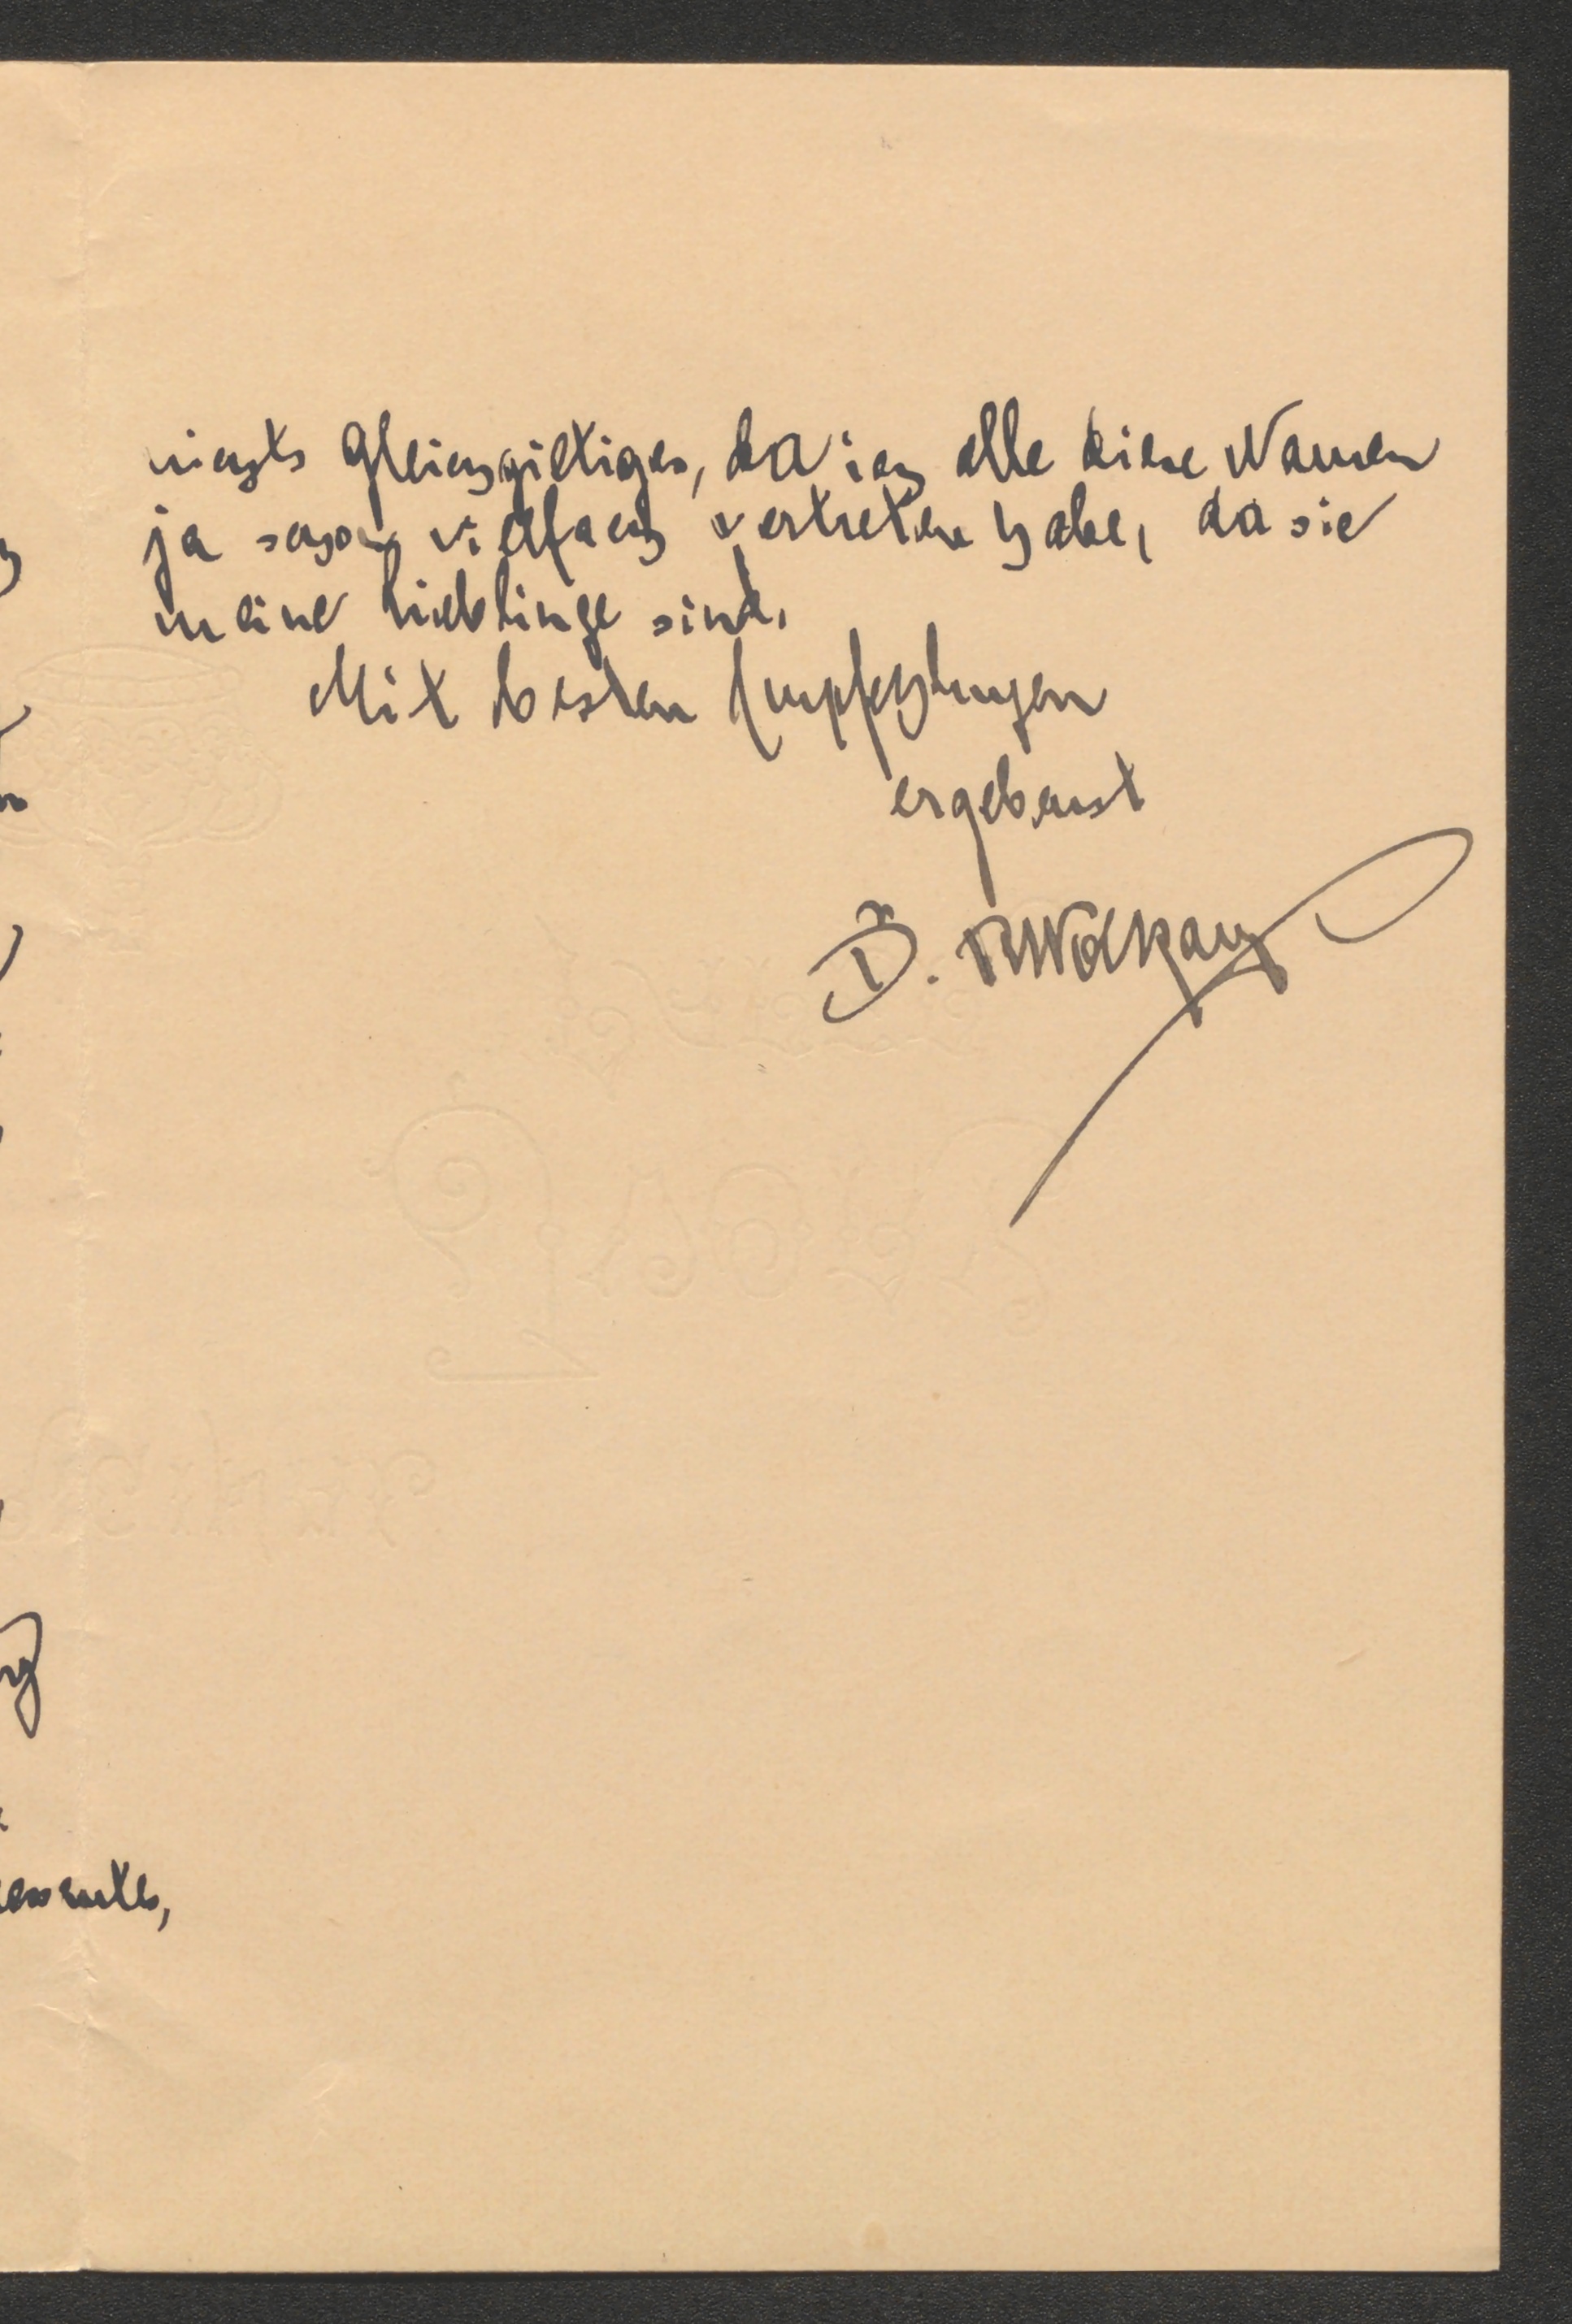 nichts Gleichgiltiges, da ich alle diese Namen
ja schon vielfach vertreten habe, da sie
meine Lieblinge sind.
Mit besten Empfehlungen
ergebenst
Dr. RWolkan